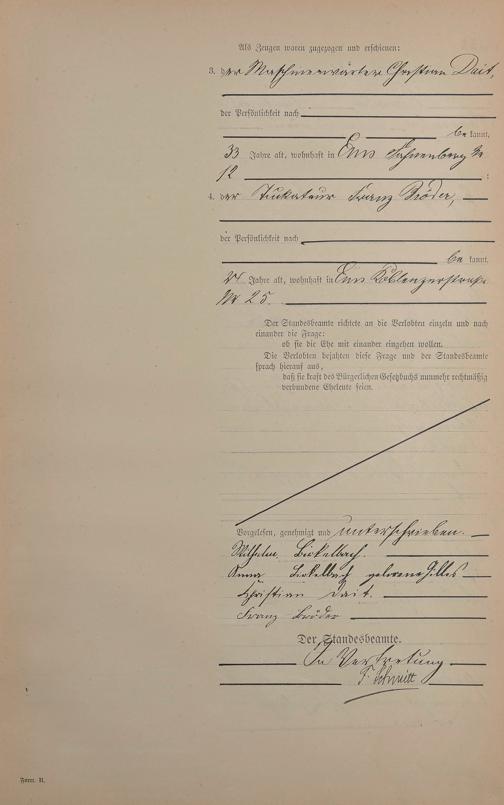 Als Zeugen waren zugezogen und erschienen:
3. der Maschinenwärter Christian Dait,
der Persönlichkeit nach
be kannt,
33 Jahre alt, wohnhaft in Ems Hahnenberg №
12 ;
4. der Stukateur Franz Bröder,
der Persönlichkeit nach
be kannt,
Jahre alt, wohnhaft in Ems Koblenzerstraße
№ 25.
Der Standesbeamte richtete an die Verlobten einzeln und nach
einander die Frage:
ob sie die Ehe mit einander eingehen wollen.
Die Verlobten bejahten diese Frage und der Standesbeamte
sprach hierauf aus,
daß sie kraft des Bürgerlichen Gesetzbuchs nunmehr rechtmäßig
verbundene Eheleute seien.
Vorgelesen, genehmigt und unterschrieben.
Wilhelm Birkelbach.
Anna Birkelbach geborene Gilles
Christian Dait.
Franz Bröder
Der Standesbeamte.
In Vertretung
Schmitt
Form. B.